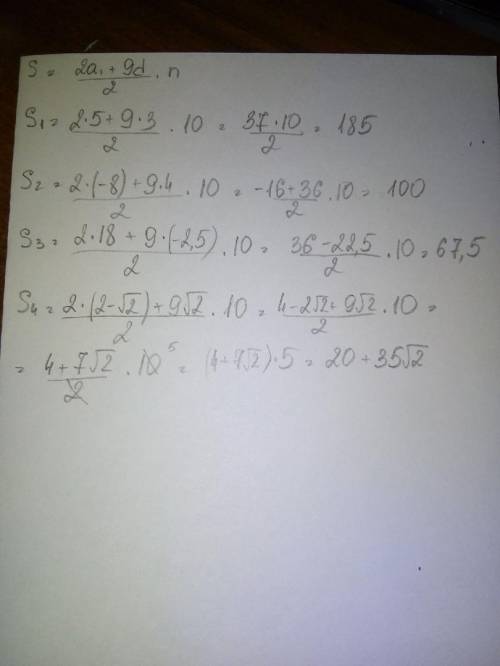 S = (2a₁ + 9d)/2 · n
S₁ = (2·5 + 9·3)/2 · 10 = (37·10)/2 = 185
S₂ = (2·(-8) + 9·4)/2 · 10 = (-16+36)/2 · 10 = 100
S₃ = (2·18 + 9·(-2,5))/2 · 10 = (36-22,5)/2 · 10 = 67,5
S₄ = (2·(2-√2) + 9√2)/2 · 10 = (4-2√2+9√2)/2 · 10 =
= (4+7√2)/2 · 10 ⁵ = (4+7√2)·5 = 20+35√2